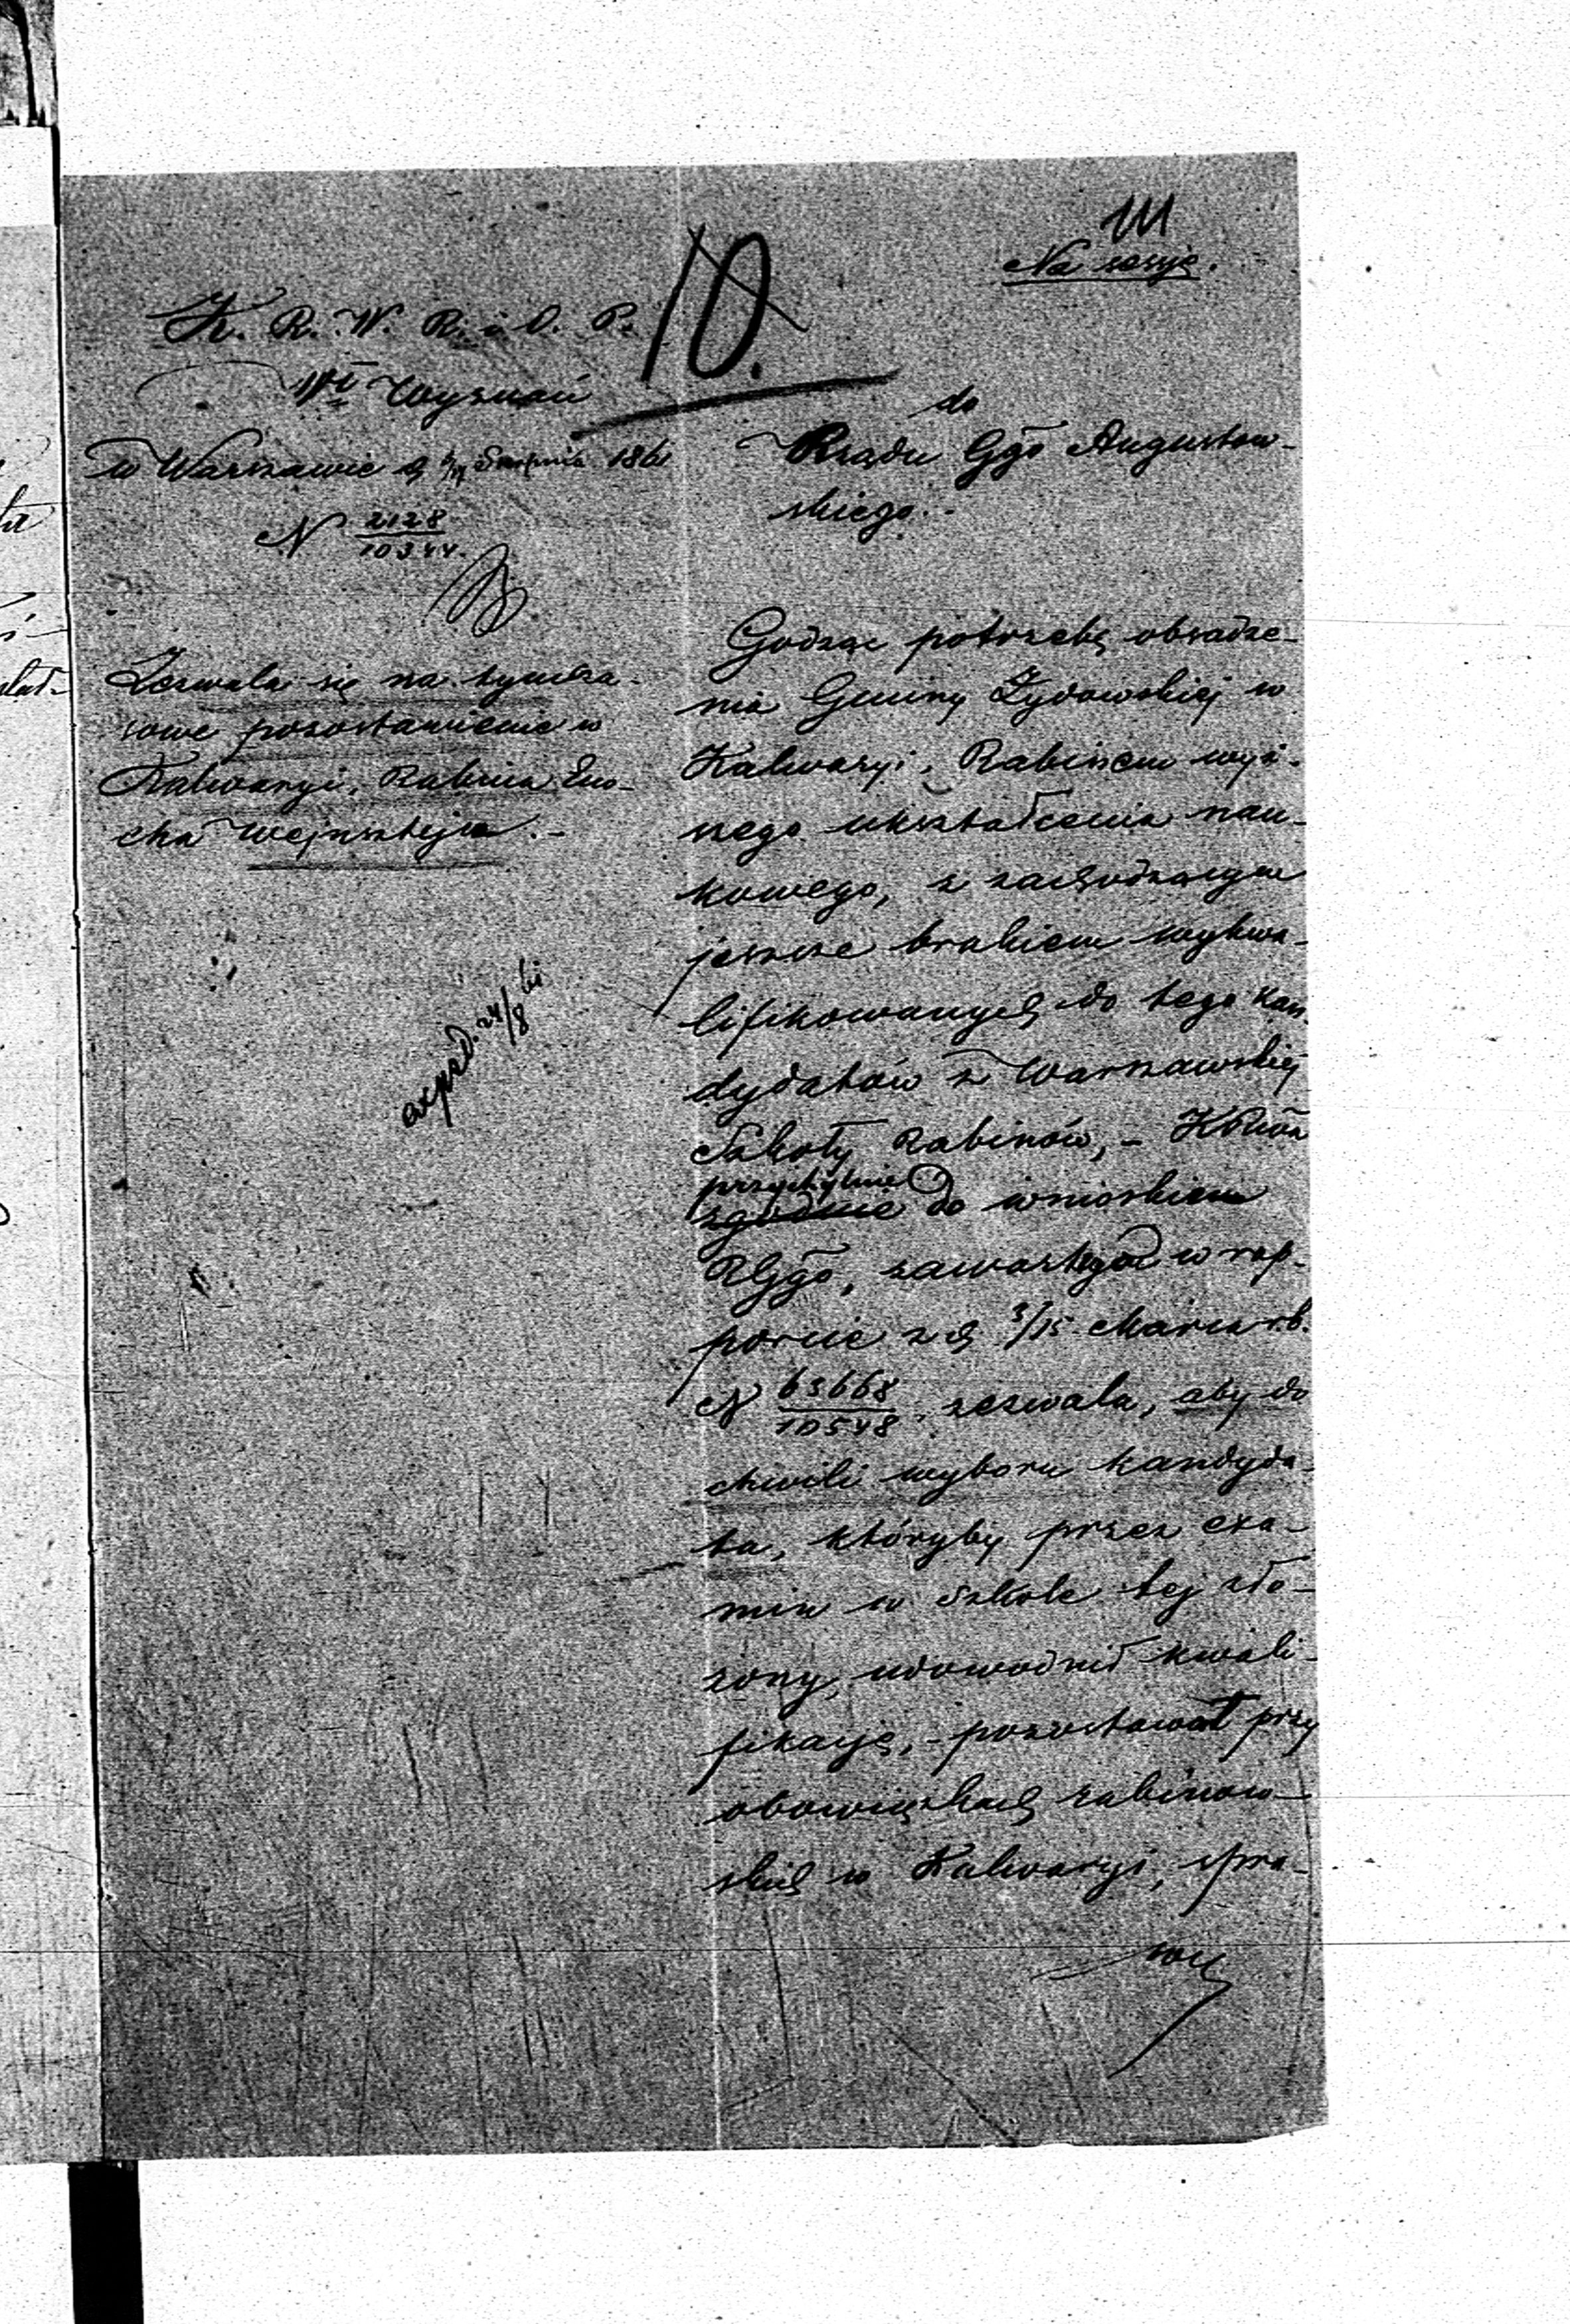 111
Na sesyę.
10.
K. R. W. R. i O. P.
Wł Wyznań
w Warszawie d Sierpnia 1861
N 2128/10344.
Zezwala się na tymcza-
sowe pozostawienie w
Kalwaryi, Rabina Eno-
cha Wejnsztejna.-
exped. 24/8 61
do
Rządu Ggo Augustow-
skiego.
Godząc potrzebę obsadze-
nia Gminy Żydowskiej w
Kalwaryi, Rabinem wyż-
szego ukształcenia nau-
kowego, z zachodzącym
jeszcze brakiem wykwa-
lifikowanych do tego kan-
dydatów z Warszawskiej
Szkoły Rabinów, -
przychylnie
zgodnie do wnioskiem
RGgo, zawartego w rap-
porcie z d. 3/15 Marca r.b.
N 63668/10548, zezwala, aby do
chwili wyboru kandyda-
ta, któryby przez exa-
min w szkole tej zło-
żony, udowodnił kwali-
fikacyę, - pozostawał przy
obowiązkach rabinow-
skich w Kalwaryi, spra-